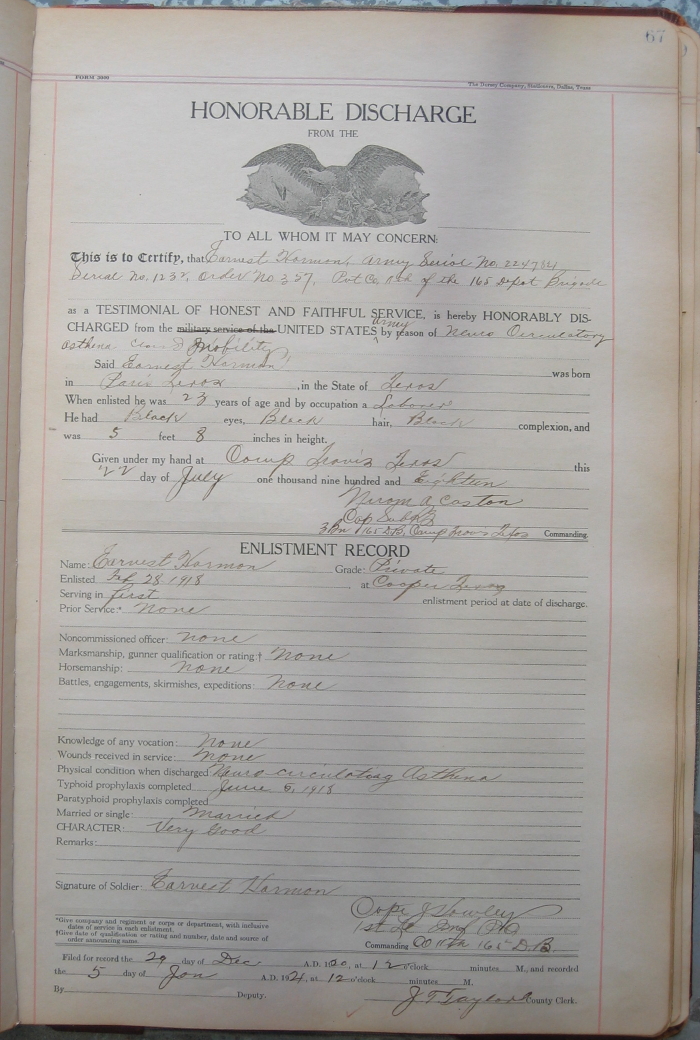 67
FORM 3000
The Dorsey Company, Stationers, Dallas, Texas
HONORABLE DISCHARGE
FROM THE
TO ALL WHOM IT MAY CONCERN:
This is to Certify, that Earnest Harmon, Army Serial No.
Serial No. 1232, Order No 337, Pvt Co of the 165 Depot Brigade
as a TESTIMONIAL OF HONEST AND FAITHFUL SERVICE, is hereby HONORABLY DIS-
CHARGED from the military service of the UNITED STATES Army by reason of Neuro Circulatory
Asthena Class D Mobility
Said Earnest Harmon was born
in Paris Texas, in the State of Texas
When enlisted he was 23 years of age and by occupation a Laborer
He had Black eyes, Black hair, Black complexion, and
was 5 feet 8 inches in height.
Given under my hand at Camp Travis Texas this
22 day of July one thousand nine hundred and Eighteen
Caston
3 Bn 165 D.B. Camp Travis Texas Commanding.
ENLISTMENT RECORD
Name: Earnest Harmon Grade: Private
Enlisted Feb 28, 1918 at Cooper Texas
Serving in first enlistment period at date of discharge.
Prior Service:* None
Noncommissioned officer: none
Marksmanship, gunner qualification or rating:† None
Horsemanship: None
Battles, engagements, skirmishes, expeditions: None
Knowledge of any vocation: None
Wounds received in service: None
Physical condition when discharged Neuro-circulatory Asthena
Typhoid prophylaxis completed June 5, 1918
Paratyphoid prophylaxis completed
Married or single: Married
CHARACTER: Very Good
Remarks:
Signature of Soldier: Earnest Harmon
1st Lt Inf
Commanding Co 165 D.B.
*Give company and regiment or corps or department, with inclusive
dates of service in each enlistment.
†Give date of qualification or rating and number, date and source of
order announcing same.
Filed for record the 29 day of Dec A.D. 1920, at 12 o'clock minutes M., and recorded
the 5 day of Jan A.D. 1921, at 12 o'clock minutes M.
By Deputy. J T Taylor County Clerk.